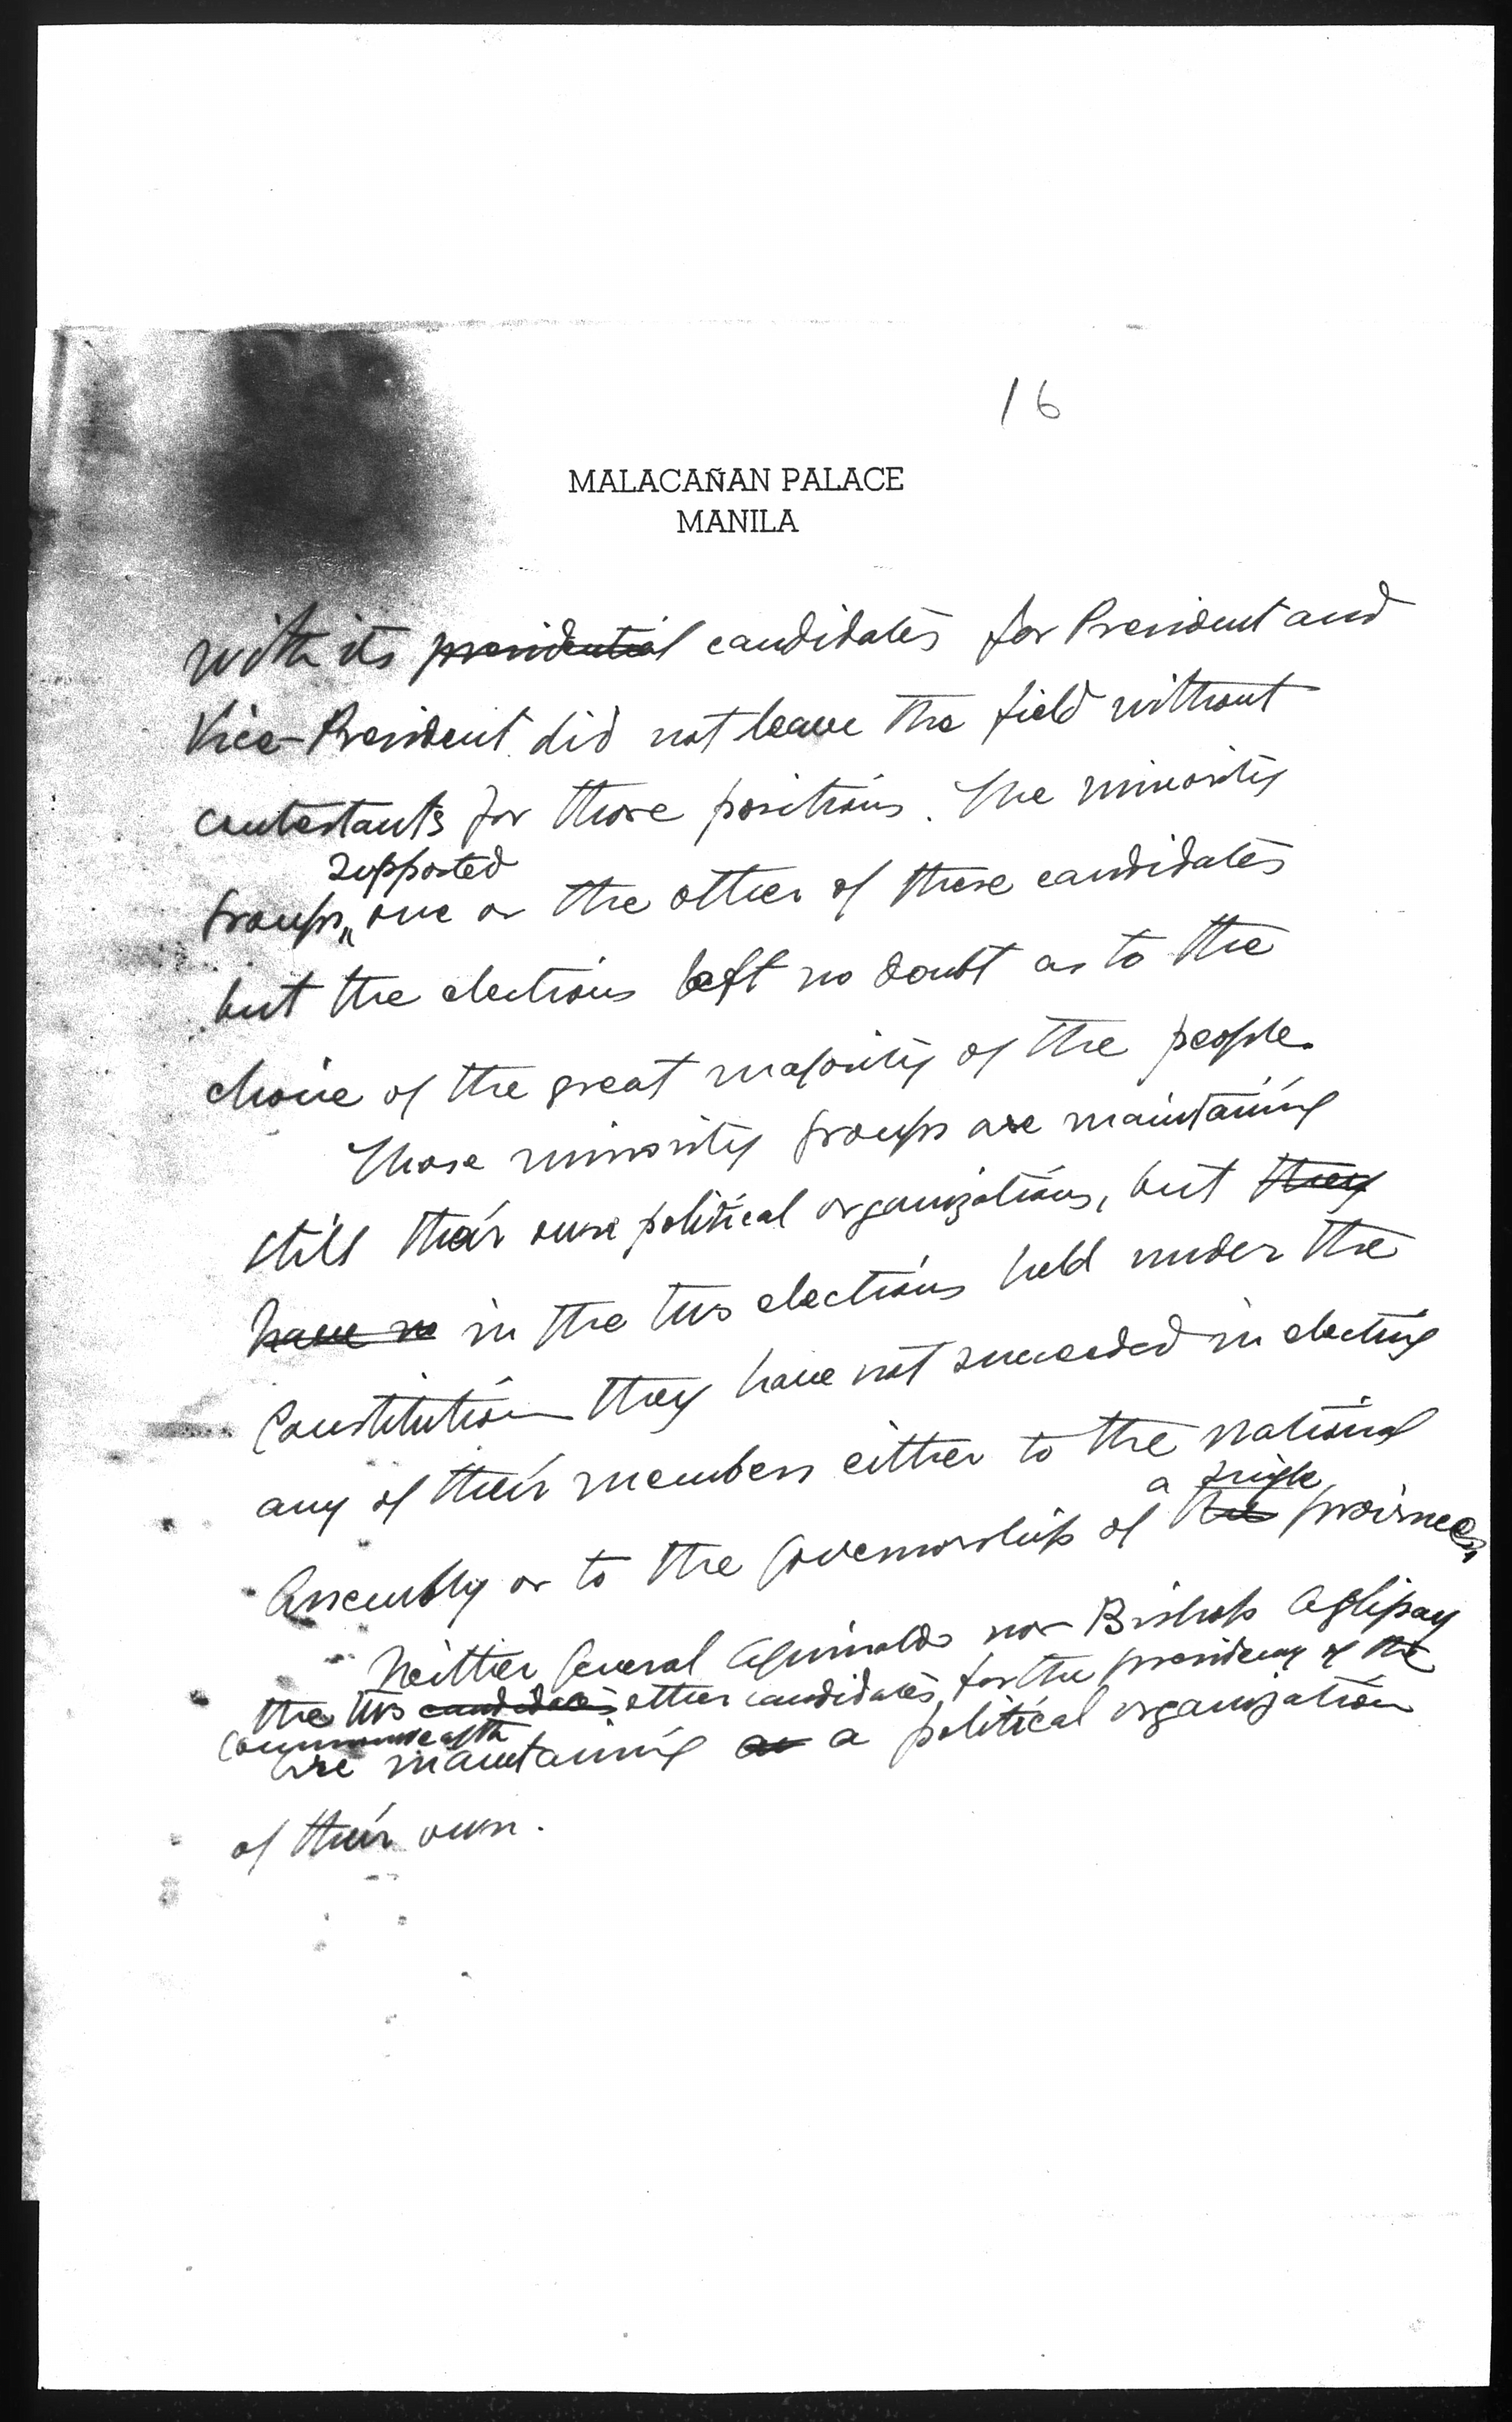 16
MALACAÑAN PALACE
MANILA
with its presidential candidates for President and
Vice-President did not leave the field without
contestants for those positions. The minority
supported
groups, one or the other of these candidates
but the elections left no doubt as to the
choice of the great majority of the people.
Those minority groups are maintaining
still their own political organizations, but they
have no in the two elections held under the
Constitution they have not succeeded in electing
any of their members either to the National
a single
Assembly or to the Governorship of the provinces,
Neither General Aguinaldo nor Bishop Aglipay
the two candidates other candidates, for the presidency of the
Commonwealth
are maintaining as a political organization
of their own.